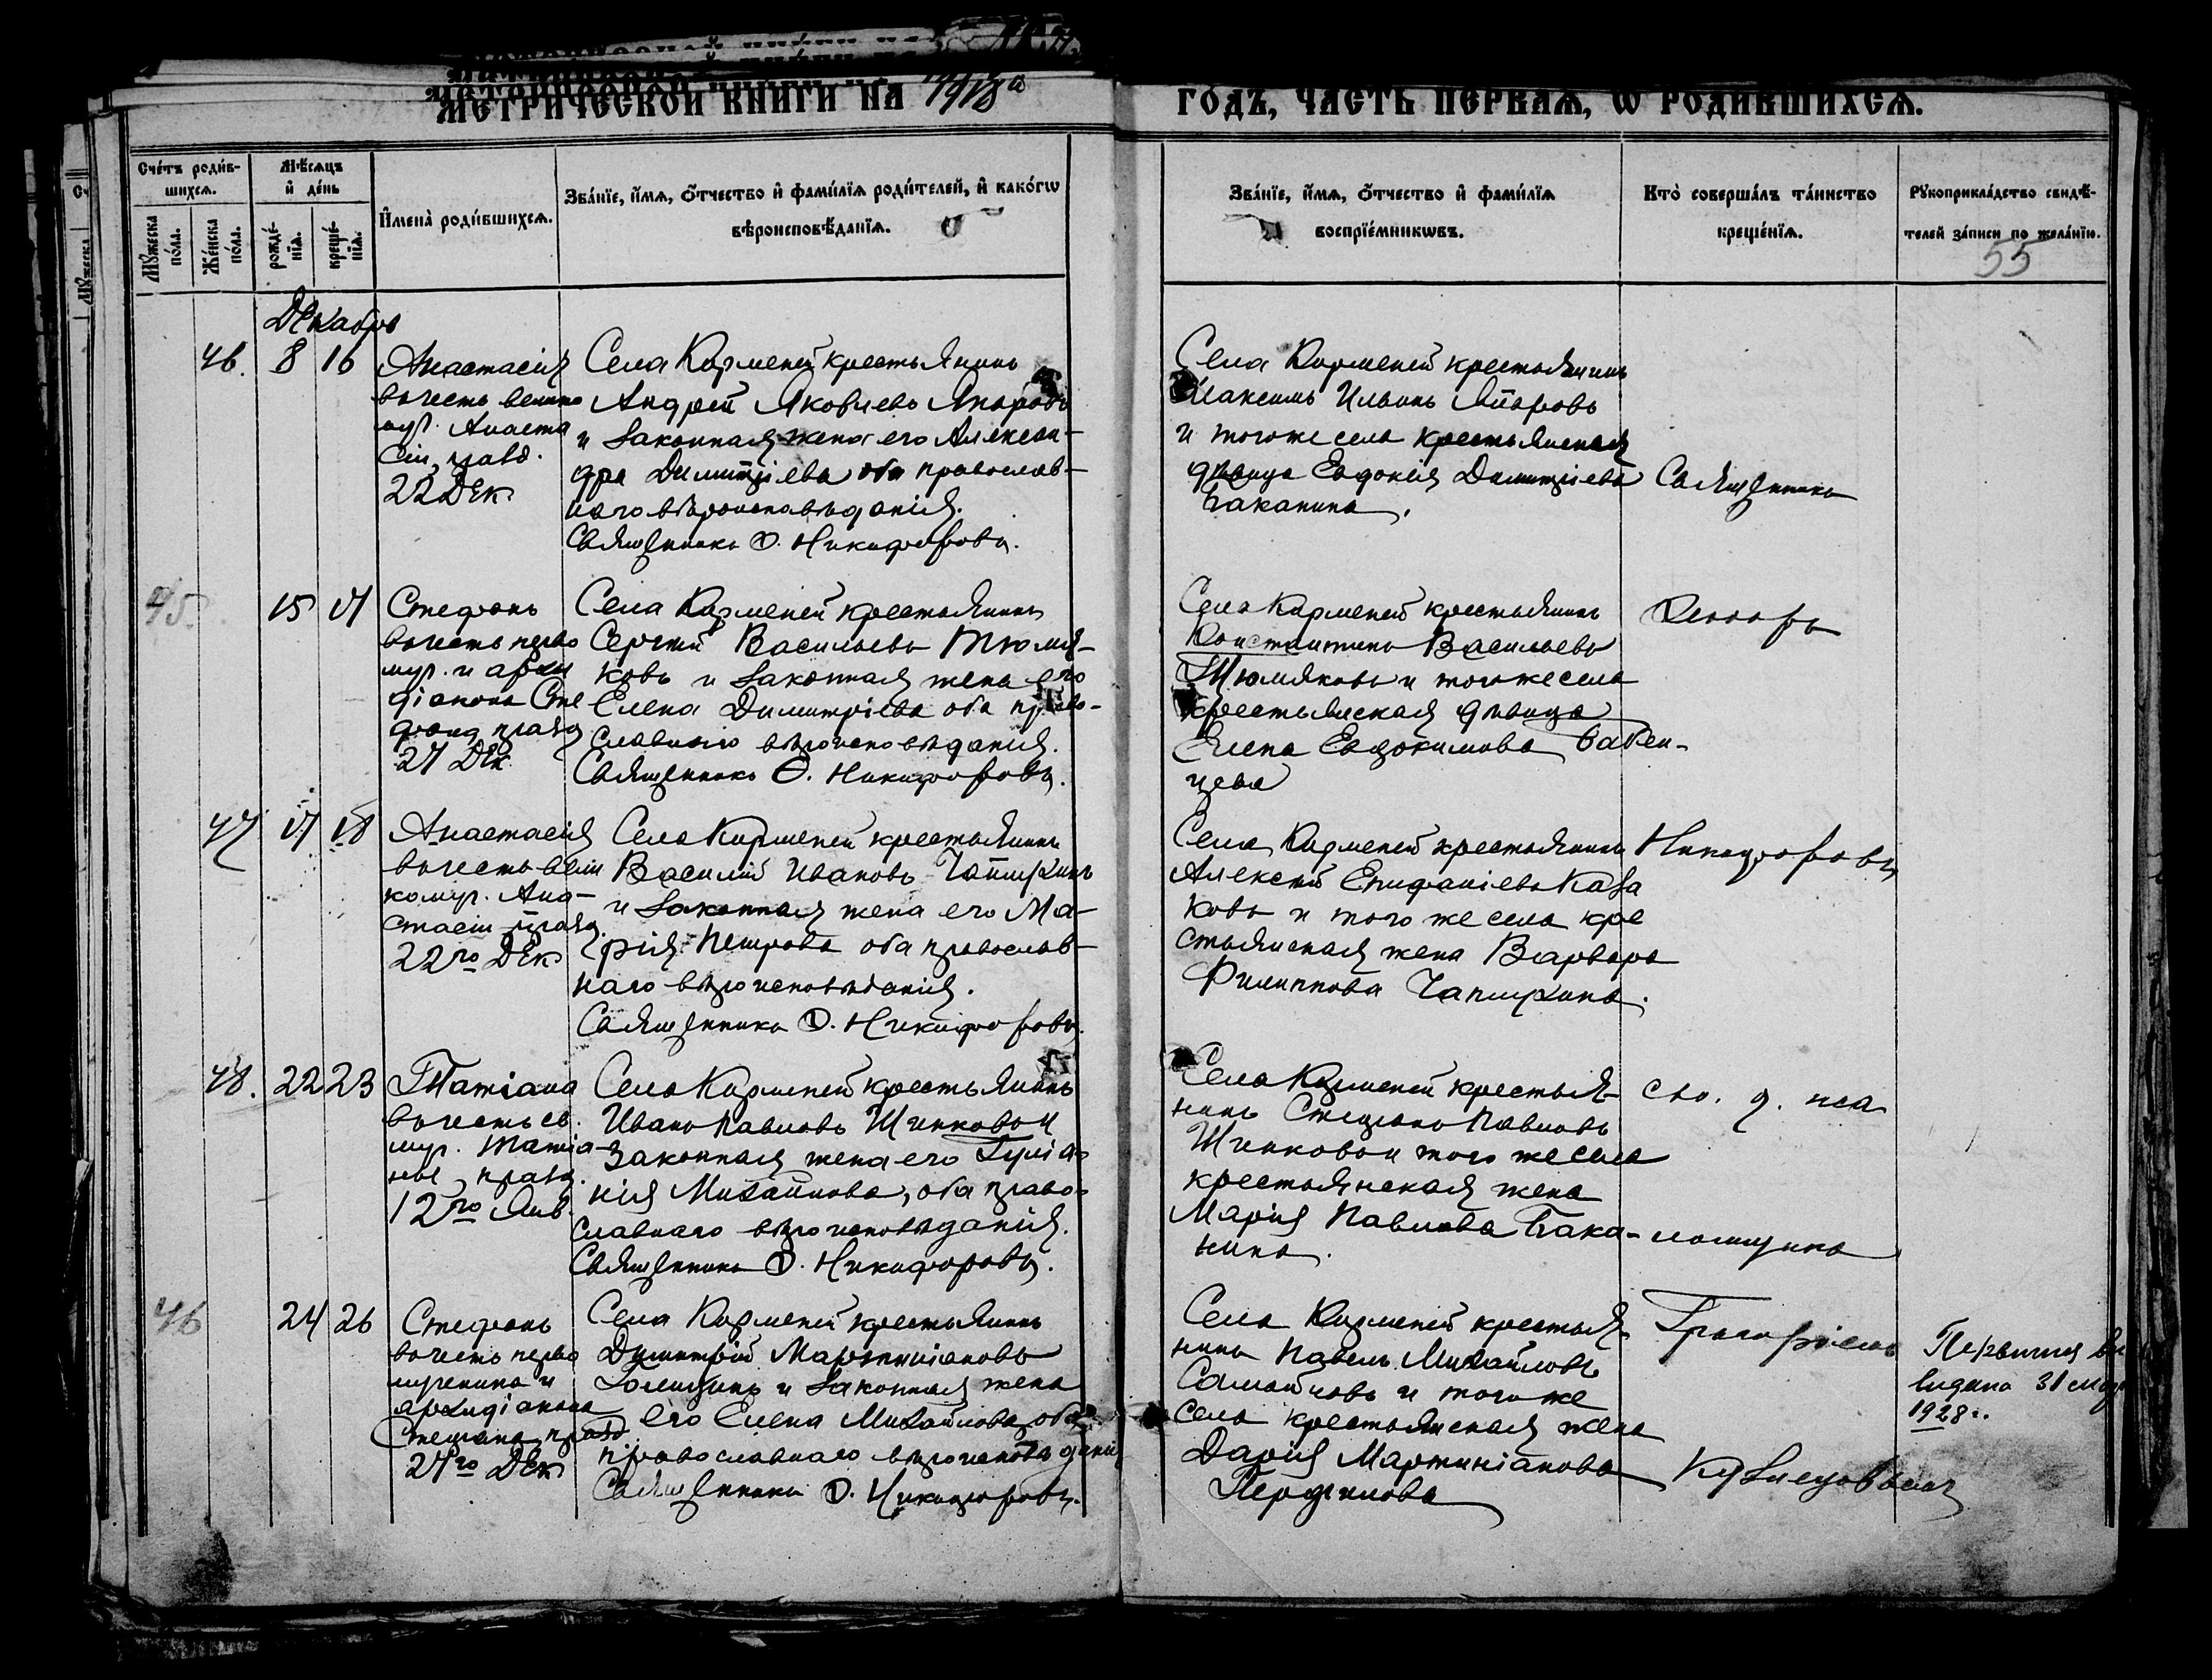 МЕТРИЧЕСКОЙ КНИГИ НА 1913й
ГОДЪ, ЧАСТЬ ПЕРВАѦ, Ѡ РОДИВШИХСѦ.
Сче́тъ роди́в-
шихсѧ.
Мѣ́сѧцъ
и҆ де́нь
Мꙋ́жеска
по́ла.
Же́нска
по́ла.
рожде́-
нїѧ.
креще́-
нїѧ.
И҆мена̀ роди́вшихсѧ.
Зва́нїе, и҆́мѧ, ѻ҆́тчество и҆ фамі́лїѧ роди́телей, и҆ како́гѡ
вѣроисповѣ́данїѧ.
Зва́нїе, и҆́мѧ, ѻ҆́тчество и҆ фамі́лїѧ
воспрїе́мникѡвъ.
Кто̀ соверша́лъ та́инство
креще́нїѧ.
Рꙋкоприкла́дство свидѣ́-
телей за́писи по жела́нїю.
55
Декабрь
46. 8 16
Анастасія
въ честь велико
муч. Анаста
сіи, празд.
22 Дек
Села Кармелей крестьянинъ
Андрей Яковлевъ Япаровъ
и законная жена его Алексан-
дра Димитріева оба православ-
наго вѣроисповѣданія.
Священникъ Ѳ. Никифоровъ.
Села Кармелей крестьянинъ
Максимъ Ильинъ Япаровъ
и тогоже села крестьянская
дѣвица Евдокія Димитріева
Баканина.
Священникъ
45. 15 17
Стефанъ
въ честь перво
муч. и архи
діакона Сте
фана, празд
27 Дек
Села Кармелей крестьянинъ
Сергѣй Васильевъ Тюмя-
ковъ и законная жена его
Елена Димитріева оба право-
славнаго вѣроисповѣданія.
Священникъ Ѳ. Никифоровъ.
Села Кармелей крестьянинъ
Константинъ Васильевъ
Тюмяковъ и тогоже села
крестьянская дѣвица
Елена Евдокимова
цева
Ѳеодоръ
47 17 18
Анастасія
въ честь вели
комуч. Ана-
стасіи празд.
22го Дек
Села Кармелей крестьянинъ
Василій Ивановъ Чапшукинъ
и законная жена его Ма-
рія Петрова оба православ-
наго вѣроисповѣданія.
Священникъ Ѳ. Никифоровъ.
Села Кармелей крестьянинъ
Алексѣй Епифаніевъ Каза
ковъ и того же села кре
стьянская жена Варвара
Филиппова
Никифоровъ
48. 22 23
Татіана
въ честь св.
муч. Татіа-
ны, празд.
12го Янв.
Села Кармелей крестьянинъ
Иванъ Павловъ Шинковъ и
законная жена его Іуліа-
нія Михайлова, оба право-
славнаго вѣроисповѣданія.
Священникъ Ѳ. Никифоровъ.
Села Кармелей крестья-
нинъ Стефанъ Павловъ
Шинковъ и того же села
крестьянская жена
Марія Павлова Бака-
нина.
съ и. д. пса
ломщика
46 24 26
Стефанъ
въ честь перво
мученика и
архидіакона
Стефана, празд
27го Дек
Села Кармелей крестьянинъ
Димитрій Мартиніановъ
и законная жена
его Елена Михайлова, оба
православнаго вѣроисповѣданія
Священникъ Ѳ. Никифоровъ.
Села Кармелей крестья-
нинъ Павелъ Михайловъ
Самойловъ и тогоже
села крестьянская жена
Дарія Мартиніанова
Перфилова
Григоріемъ
Кузнецовымъ
выдана 31 мар
1928 г.